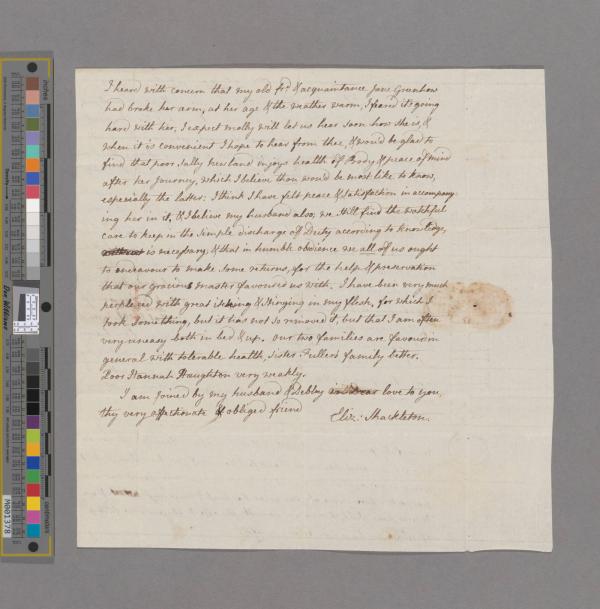 I heard with concern that my old frd. & acquaintance Jane Grenhow
had broke her arm, at her age & the weather warm, I feard its going
hard with her, I expect molly will let us hear soon how she is, &
when it is convenient I hope to hear from thee, & woud be glad to
find that poor Sally new land injoys health of Body & peace of mind
after her Journey, which I believe thou would be most like to know,
especially the latter: I think I have felt peace & Satisfaction in accompany-
ing her in it, & I believe my husband also, we still find the watchful
care to keep in the Simple discharge of Duty according to knowledge,
is necessary, & that in humble obedience we all of us ought
to endeavour to make some returns, for the help & preservation
that our gracious master favoures us with. I have been very much
perplexed with great itching & Stinging in my flesh, for which I
took Something, but it has not so removed it, but that I am often
very uneasy both in bed & up. our two families are favour'd in
general with tolerable health, Sister Fullers family better,
Poor Hannah Haughton very weakly.
I am joined by my husband & Debby in dear love to you,
thy very affectionate & obliged friend
Eliz: Shackleton.
inches
centimetres
Don Williams
M001378